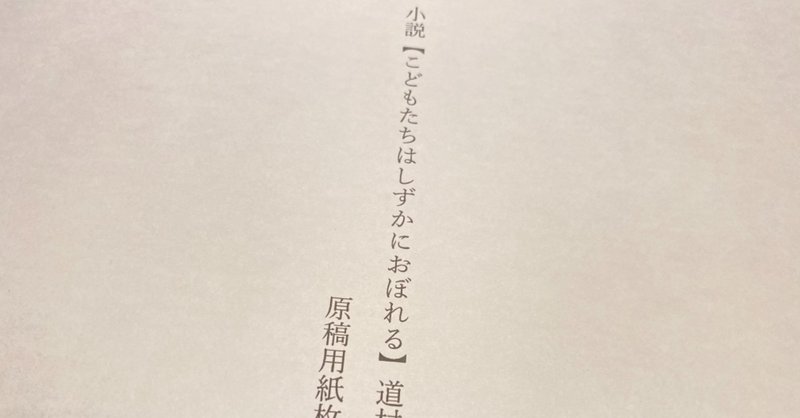 小説【こどもたちはしずかにおぼれる】道村
原稿用紙枚